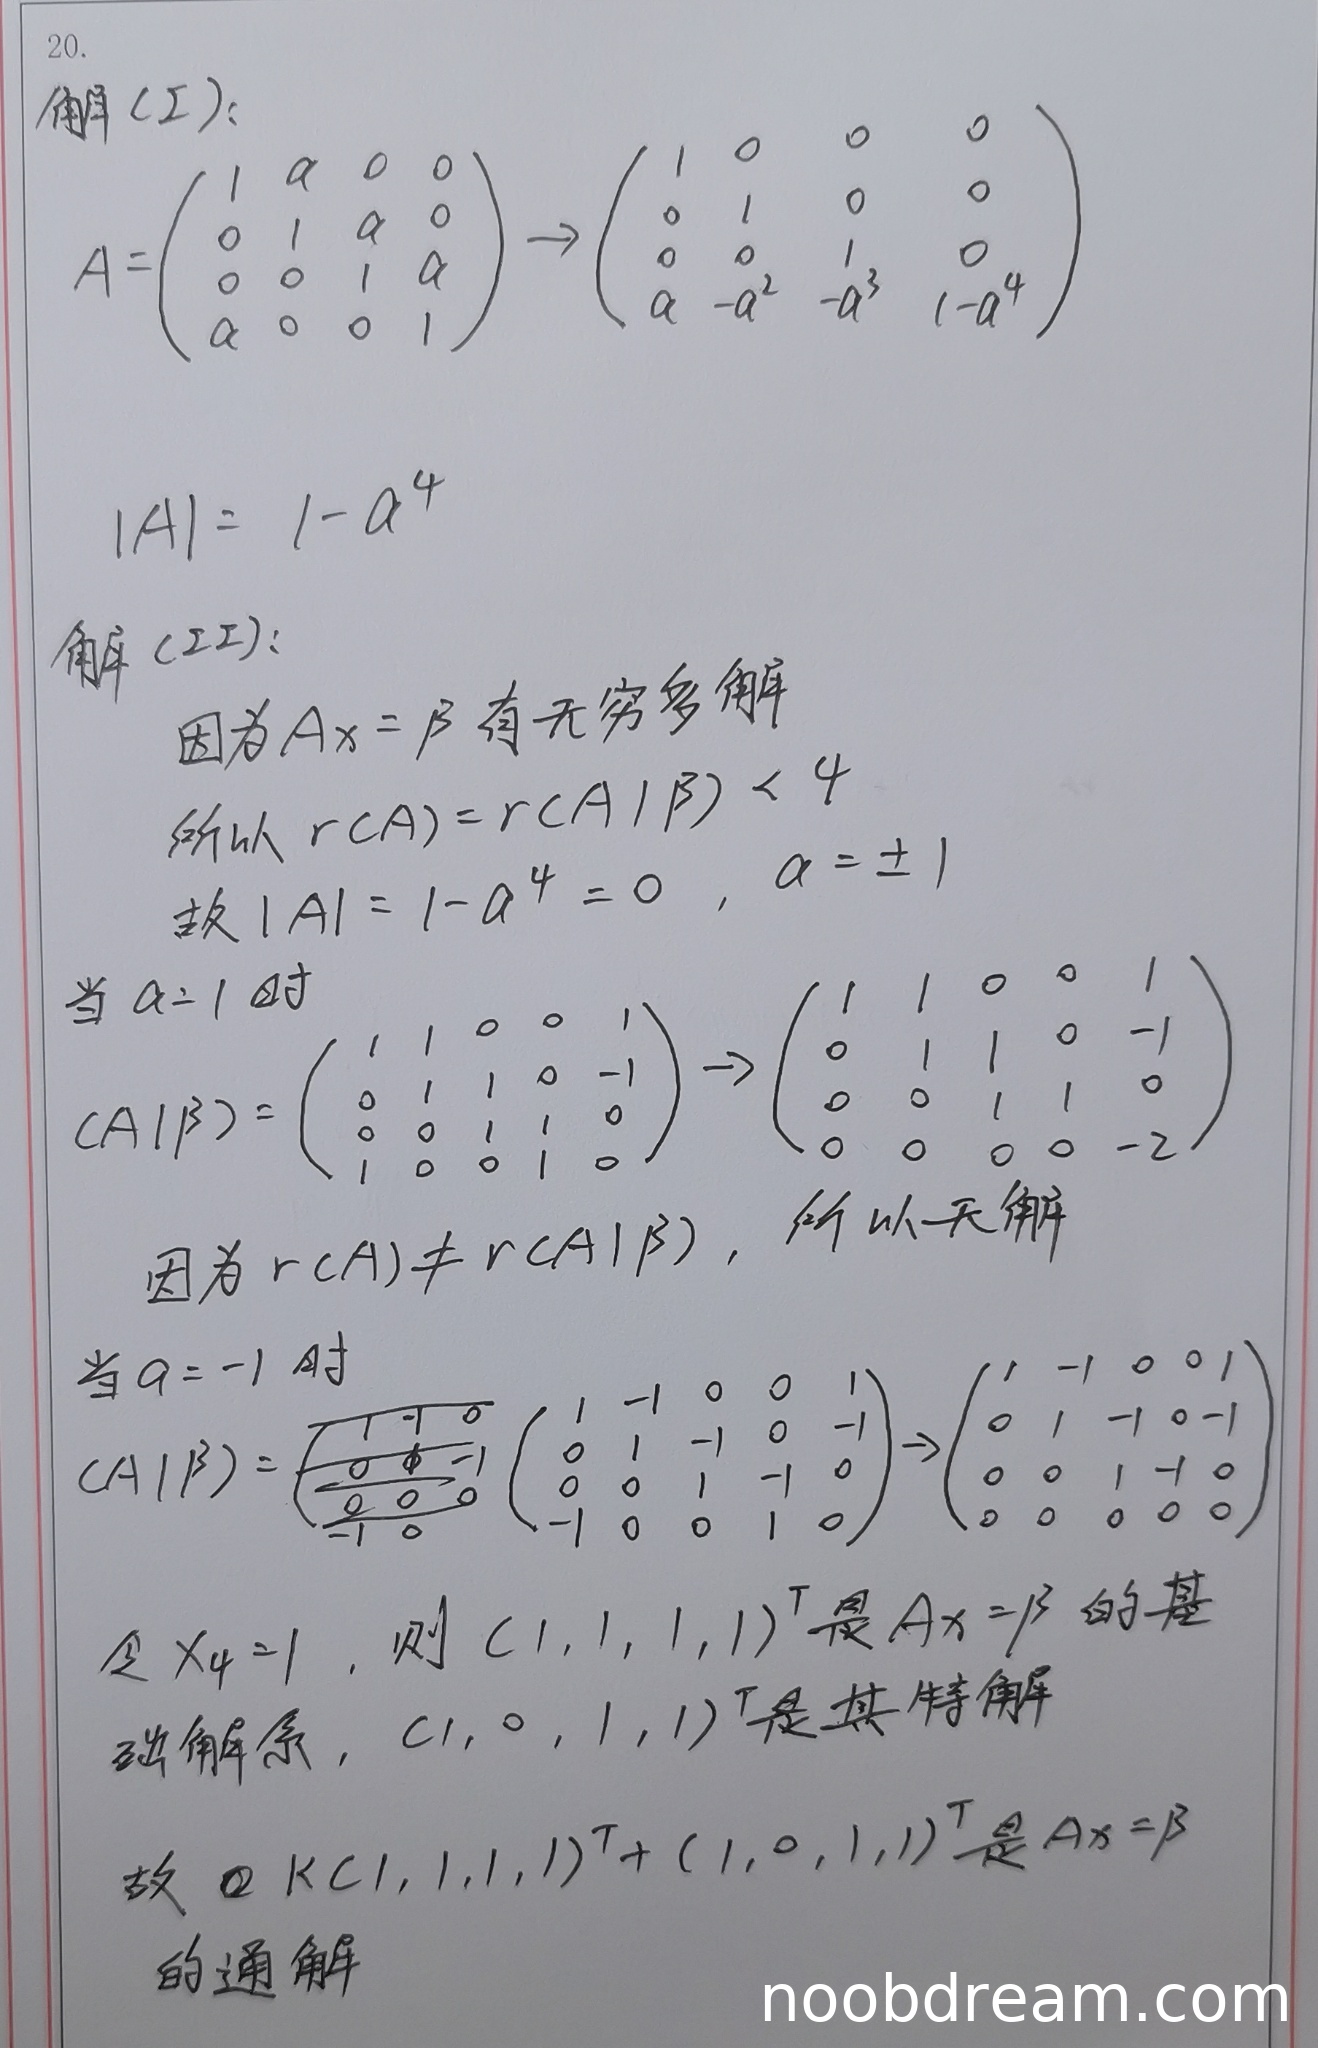 20.
解(I):
A = ( 1 a 0 0 → ( 1 0 0 0
0 1 a 0 0 1 0 0
0 0 1 a 0 0 1 0
a 0 0 1 ) a -a² -a³ 1-a⁴ )
|A| = 1-a⁴
解(II):
因为Ax=β有无穷多解
所以 r(A)=r(A|β) < 4
故|A| = 1-a⁴ = 0 , a = ±1
当a=1时
(A|β) = ( 1 1 0 0 1 → ( 1 1 0 0 1
0 1 1 0 -1 0 1 1 0 -1
0 0 1 1 0 0 0 1 1 0
1 0 0 1 0 ) 0 0 0 0 -2 )
因为r(A)≠r(A|β), 所以无解
当a=-1时
(A|β) = ( 1 -1 0 0 1 → ( 1 -1 0 0 1
0 1 -1 0 -1 0 1 -1 0 -1
0 0 1 -1 0 0 0 1 -1 0
-1 0 0 1 0 ) 0 0 0 0 0 )
令x₄=1, 则 (1,1,1,1)ᵀ是Ax=β的基
础解系, (1,0,1,1)ᵀ是其特解
故 K(1,1,1,1)ᵀ+(1,0,1,1)ᵀ是Ax=β
的通解
noobdream.com